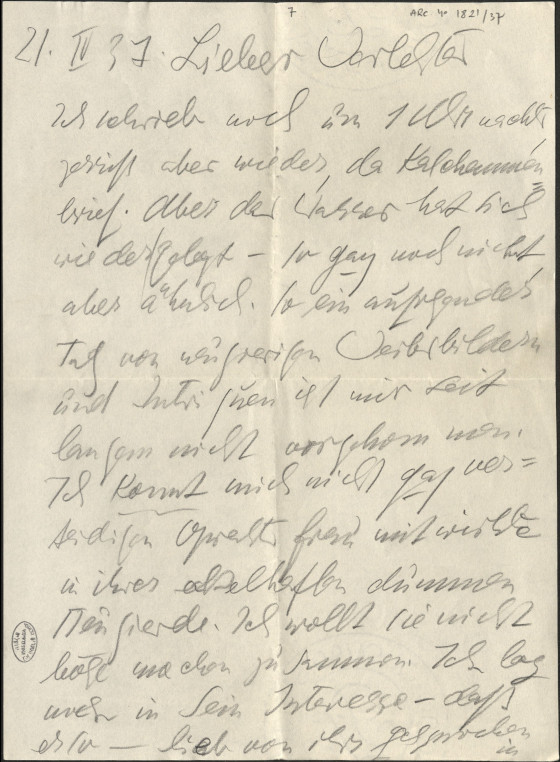 7
ARC 4o 1821/37
21. IV 37. Lieber Verehrter
Ich schrieb noch um 1 Uhr nachts
aber wieder, da
brief. Aber das Wasser hat sich
wieder gelegt – so ganz noch nicht
aber ähnlich. So ein aufregender
Tag von neugierigen Weibsbildern
und Intriguen ist mir seit
langem nicht vorgekommen.
Ich konnt mich nicht ganz ver=
teidigen frau mitwirkte
in ihrer ekelhaften dummen
Neugierde. Ich wollt sie nicht
böse machen zu Ich log
mehr in Sein Interesse – dass
er so – lieb von ihr gesprochen